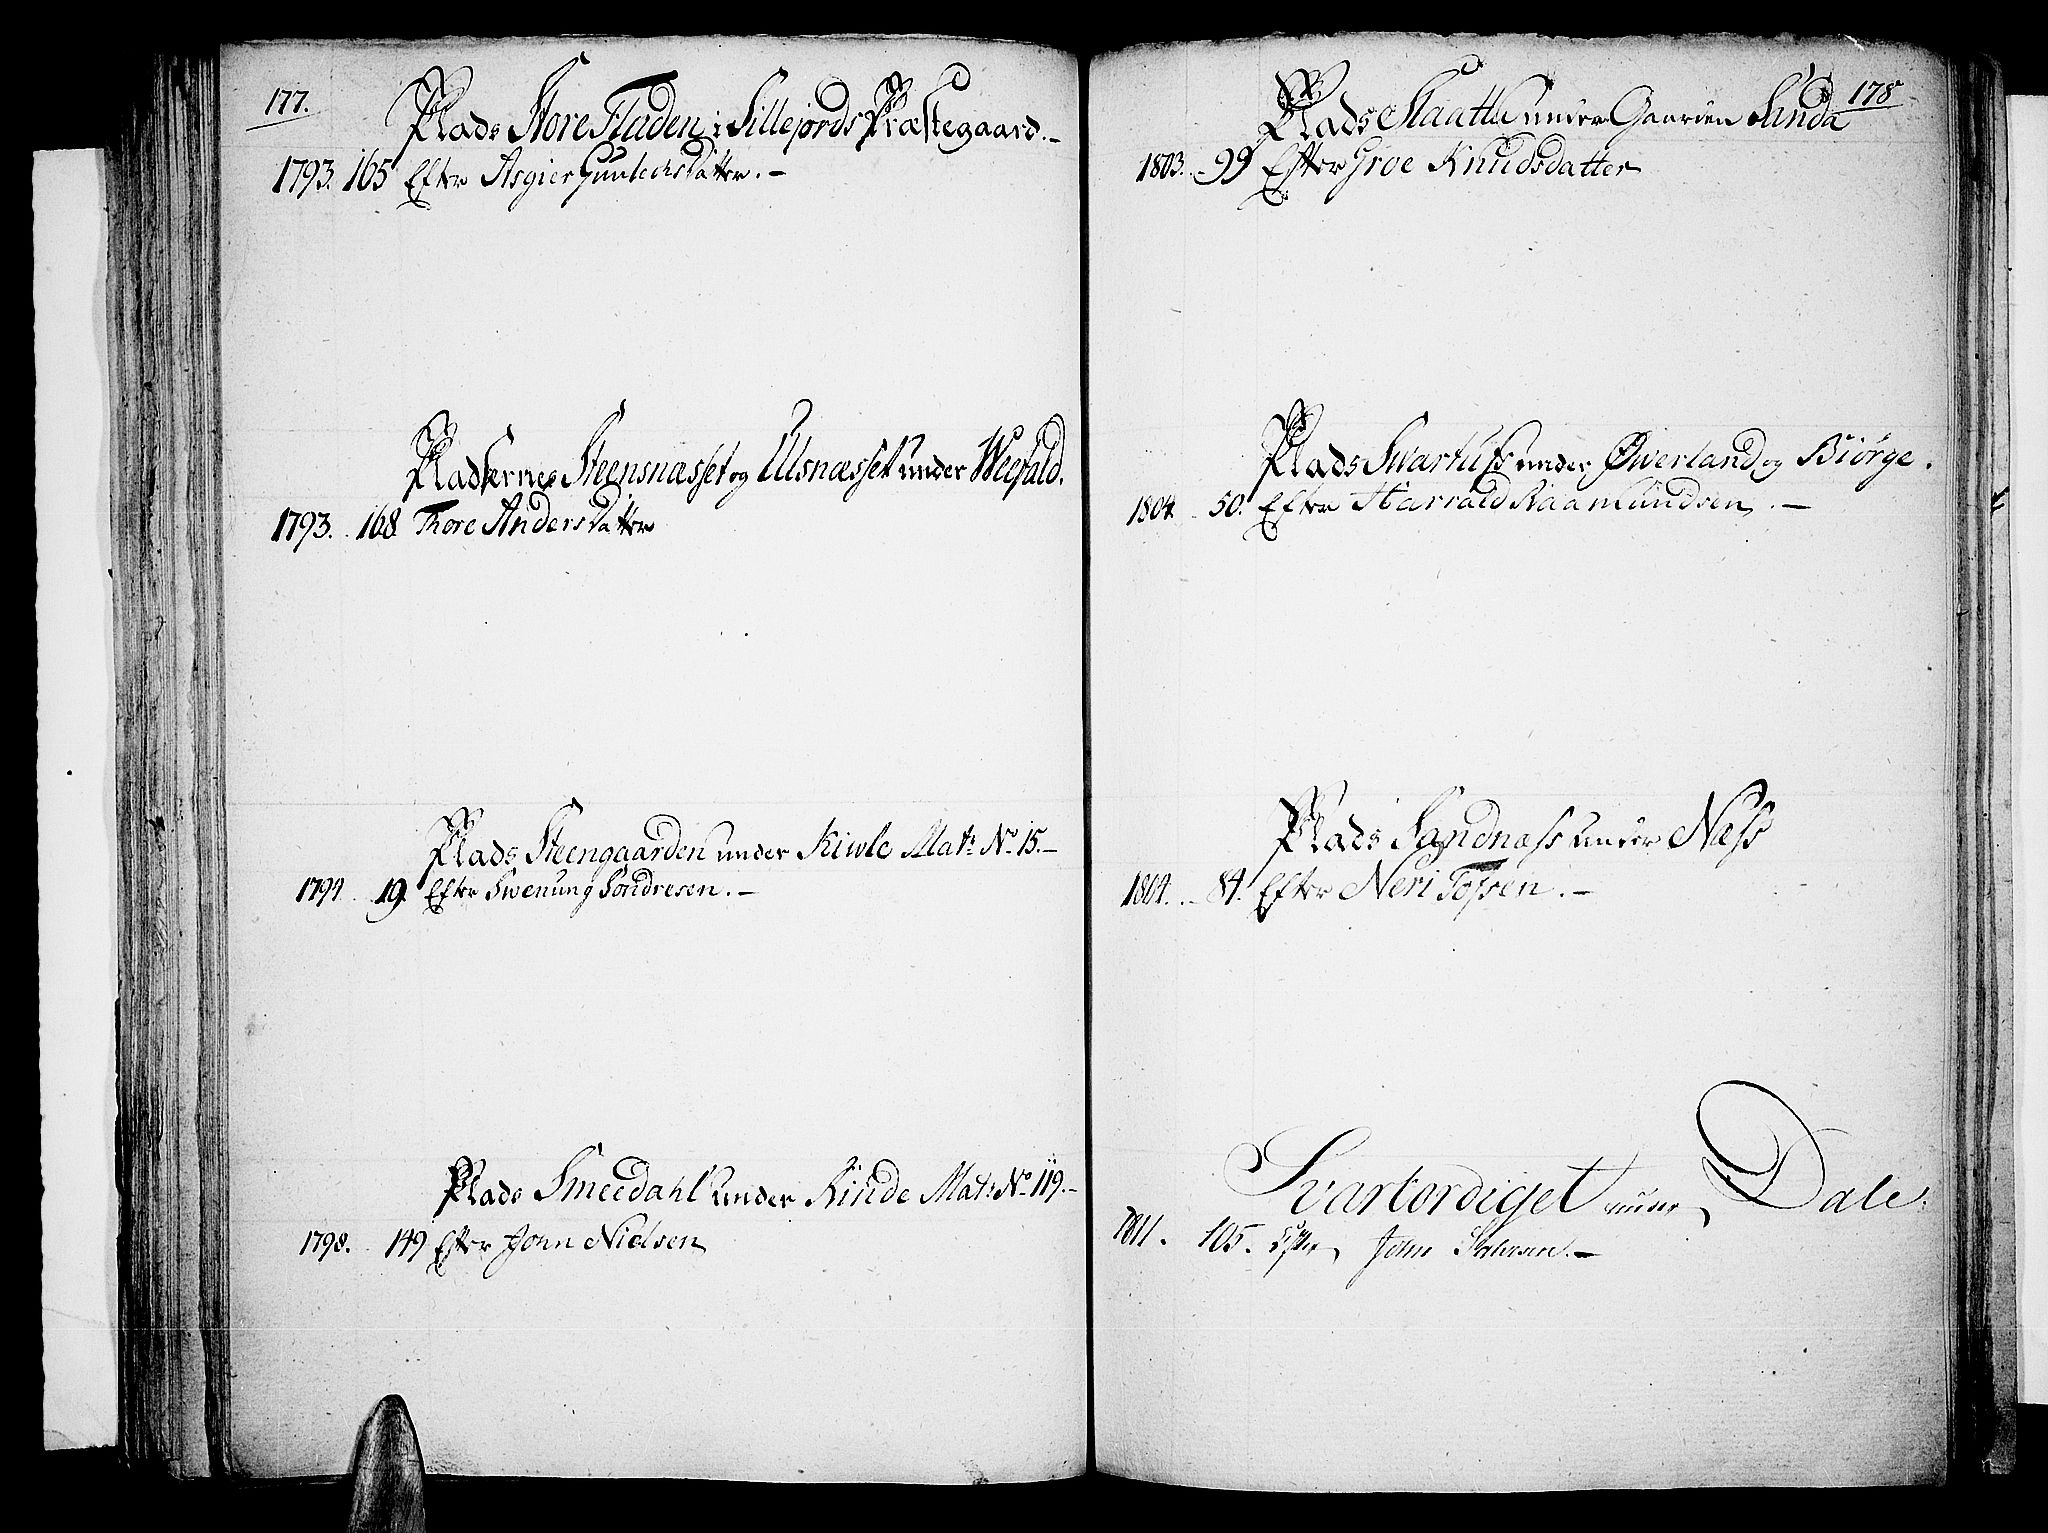 177.
Plads Store Fladen i Sillejords Præstegaard.-
1793. 165 Efter Asgier Gunlechsdatter.-
Pladserne Steensnæsset og Ulsnæsset under Weefald.
1793. 168 Thore Andersdatter
Plads Steengaarden under Kiwle Mats No 15.-
1794. 19. Efter Swenung Sondresen.-
Plads Smeedahl under Rinde Mats No 119.-
1798. 149 Efter John Nielsen
178
Plads Slaatta under Gaarden Sunda
1803. 99 Efter Groe Knudsdatter
Plads Swartufs under Øwerland og Biørge.
1804. 50. Efter Harrald Raamundsen.-
Plads Sandnæss under Næss
1804. 84. Efter Neri Tofsen.-
Svartordiget under Dale.
1811. 105. Efter John